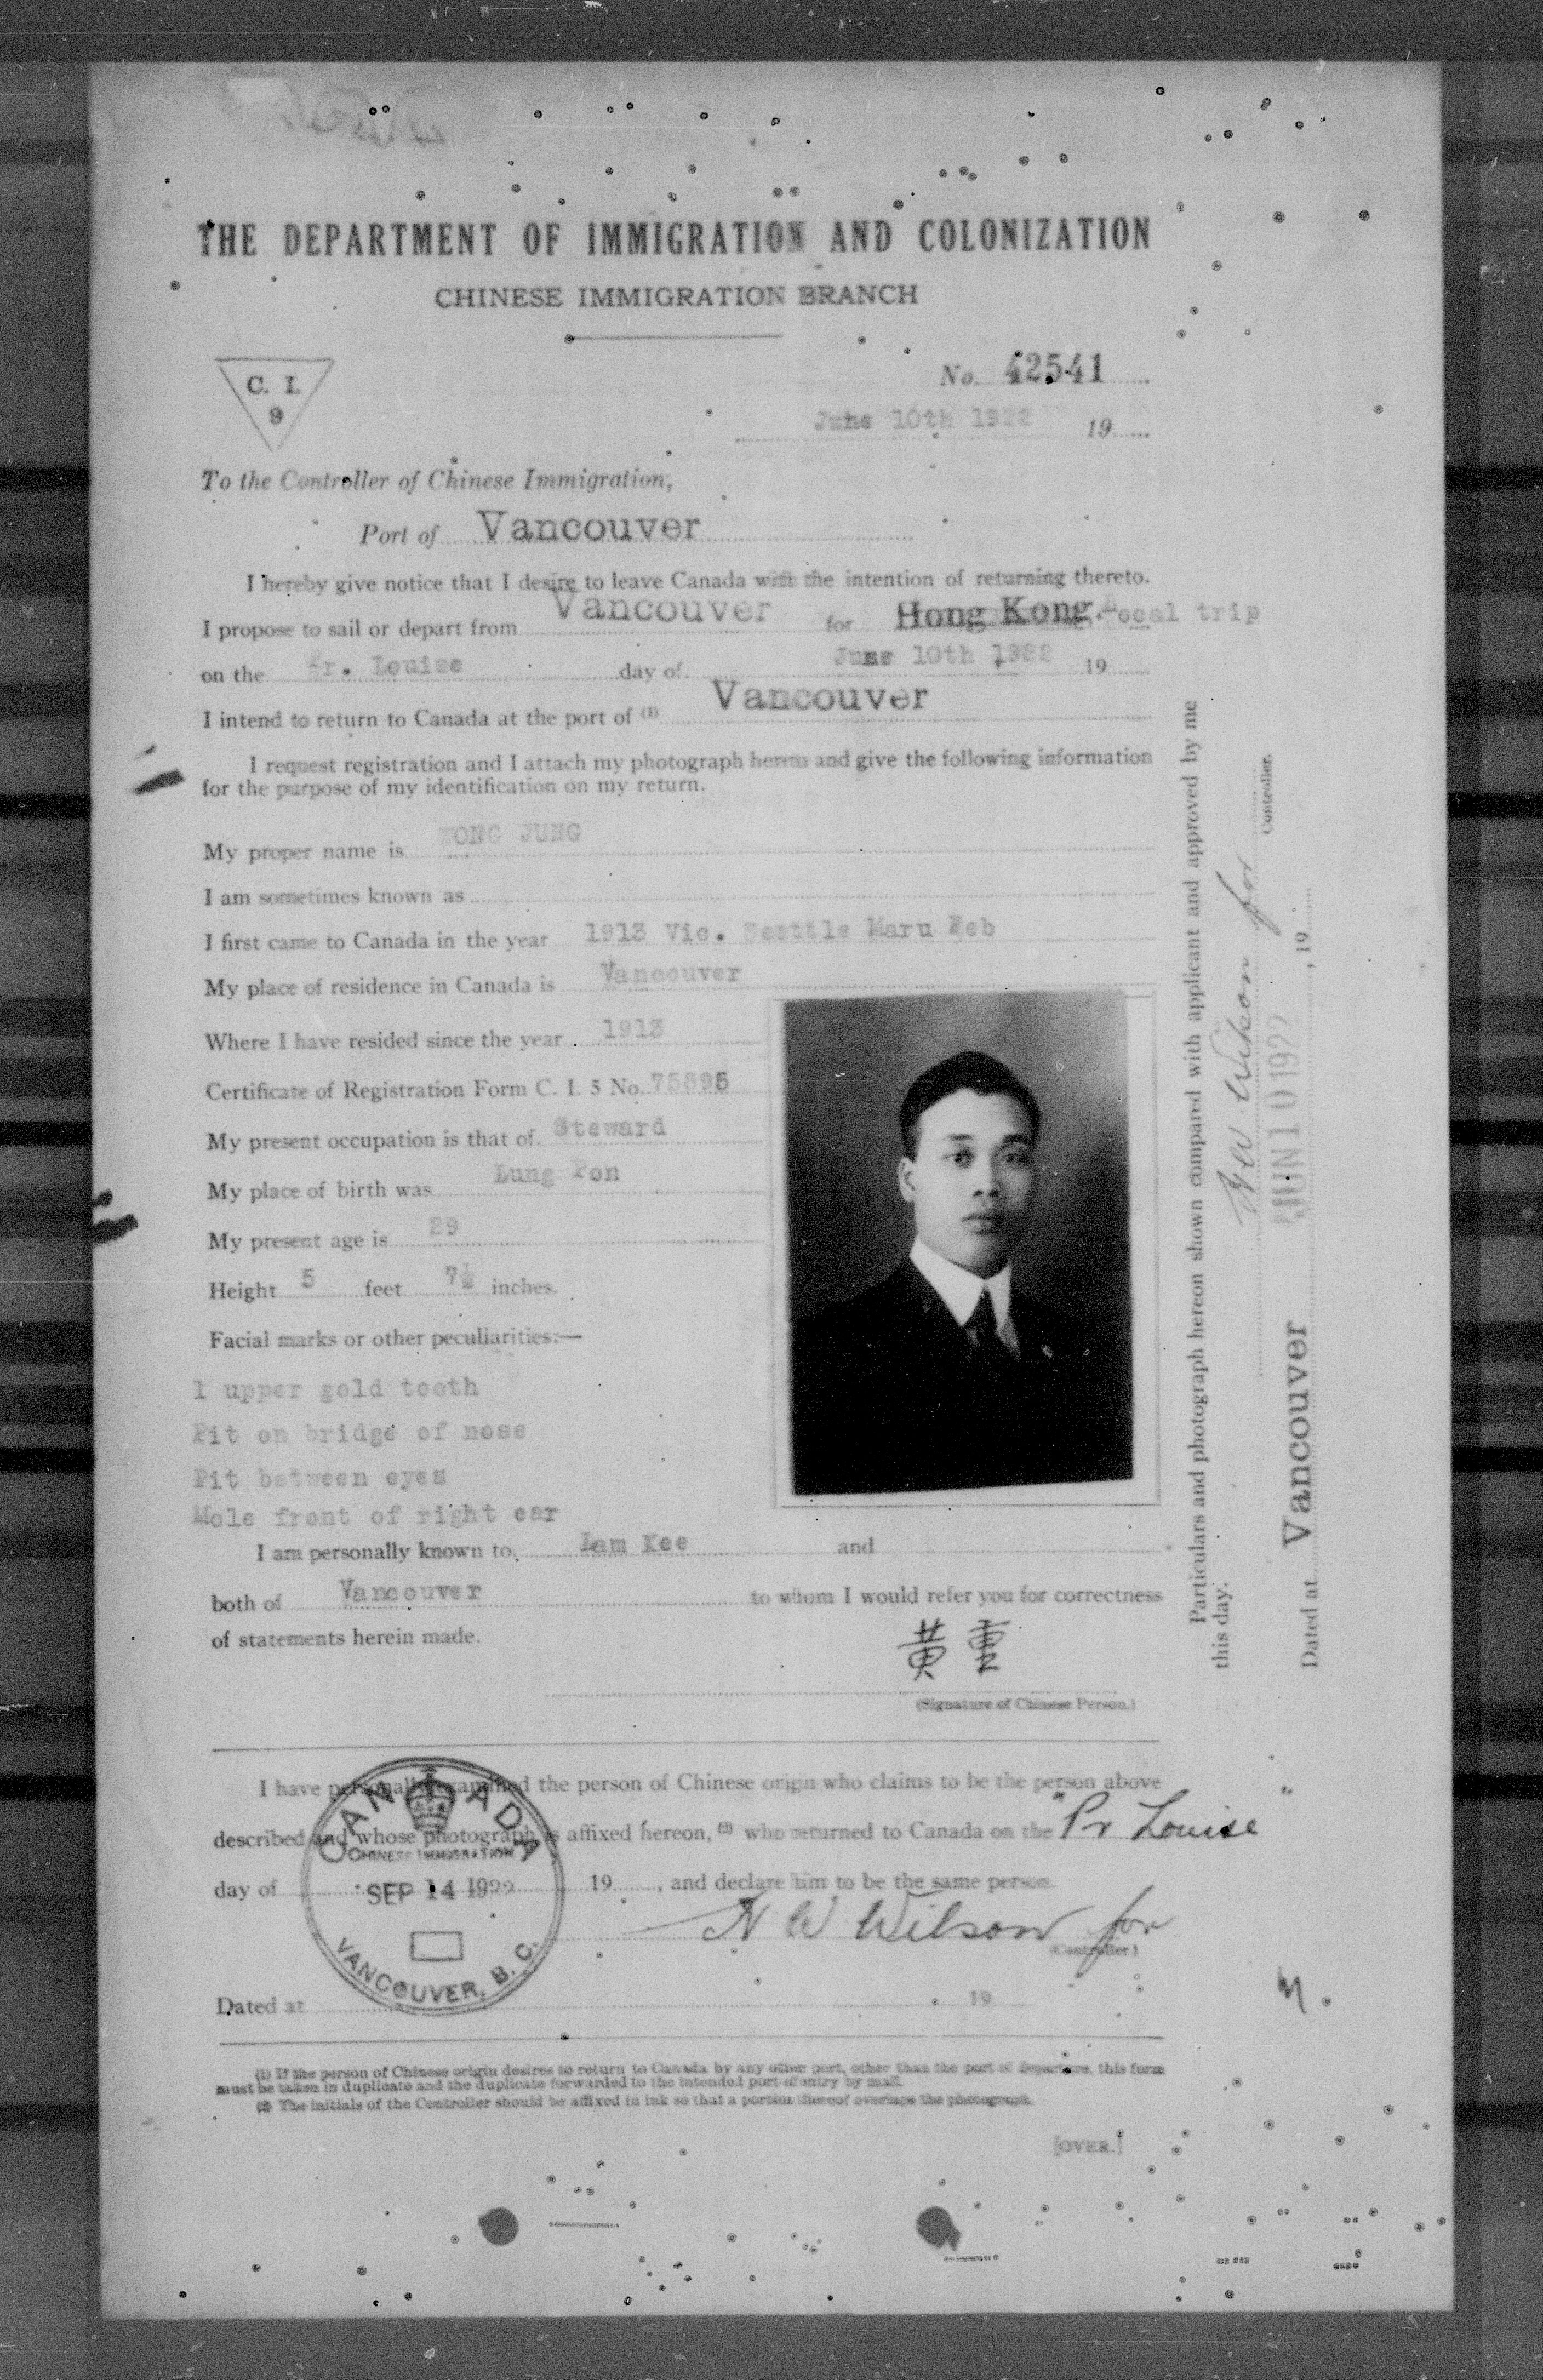 THE DEPARTMENT OF IMMIGRATION AND COLONIZATION
CHINESE IMMIGRATION BRANCH
C. I.
9
No. 42541
June 10th 1922 19
To the Controller of Chinese Immigration,
Port of Vancouver
I hereby give notice that I desire to leave Canada with the intention of returning thereto.
I propose to sail or depart from Vancouver for Hong Kong. Local trip
on the Pr. Louise day of June 10th 1922 19
I intend to return to Canada at the port of (1) Vancouver
I request registration and I attach my photograph hereto and give the following information
for the purpose of my identification on my return.
My proper name is WONG JUNG
I am sometimes known as
I first came to Canada in the year 1913 Vic. Seattle Maru Feb
My place of residence in Canada is Vancouver
Where I have resided since the year 1913
Certificate of Registration Form C. I. 5 No. 75895
My present occupation is that of Steward
My place of birth was Lung Pon
My present age is 29
Height 5 feet 7½ inches.
Facial marks or other peculiarities:—
1 upper gold tooth
Pit on bridge of nose
Pit between eyes
Mole front of right ear
I am personally known to Lam Kee and
both of Vancouver to whom I would refer you for correctness
of statements herein made.
黃重
(Signature of Chinese Person.)
I have personally examined the person of Chinese origin who claims to be the person above
described and whose photograph is affixed hereon, (2) who returned to Canada on the "Pr Louise"
day of 19 , and declare him to be the same person.
CANADA
CHINESE IMMIGRATION
SEP 14 1922
VANCOUVER, B. C.
N W Wilson for
(Controller)
Dated at 19
(1) If the person of Chinese origin desires to return to Canada by any other port, other than the port of departure, this form
must be taken in duplicate and the duplicate forwarded to the intended port of entry by mail.
(2) The initials of the Controller should be affixed in ink so that a portion thereof overlaps the photograph.
[OVER.]
Particulars and photograph hereon shown compared with applicant and approved by me
this day.
N W Wilson for
Controller.
Dated at Vancouver JUN 10 1922 , 19